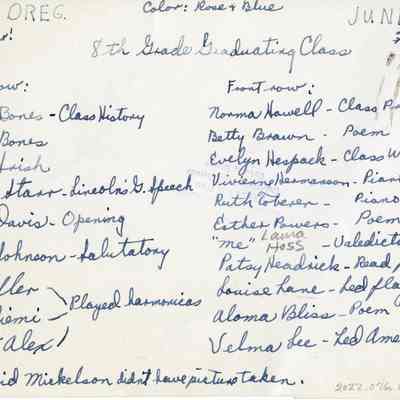 OREG.
Color: Rose & Blue
JUN
8th Grade Graduating Class
Bones - Class History
Bones
Irish
Starr - Lincoln's G. Speech
Davis - Opening
Johnson - Salutatory
Played harmonicas
Alex
Mickelson didn't have picture taken.
Front row:
Norma Howell - Class
Betty Brawn - Poem
Evelyn Hespack - Class W
Vivienne Hermanson - Pian
Ruth Toberer - Piano
Esther Powers - Poem
"Me" Laura Hoss - Valedict
Patsy Headrick - Read
Louise Lane - Led fla
Aloma Bliss - Poem
Velma Lee - Led Ame
2022.076.